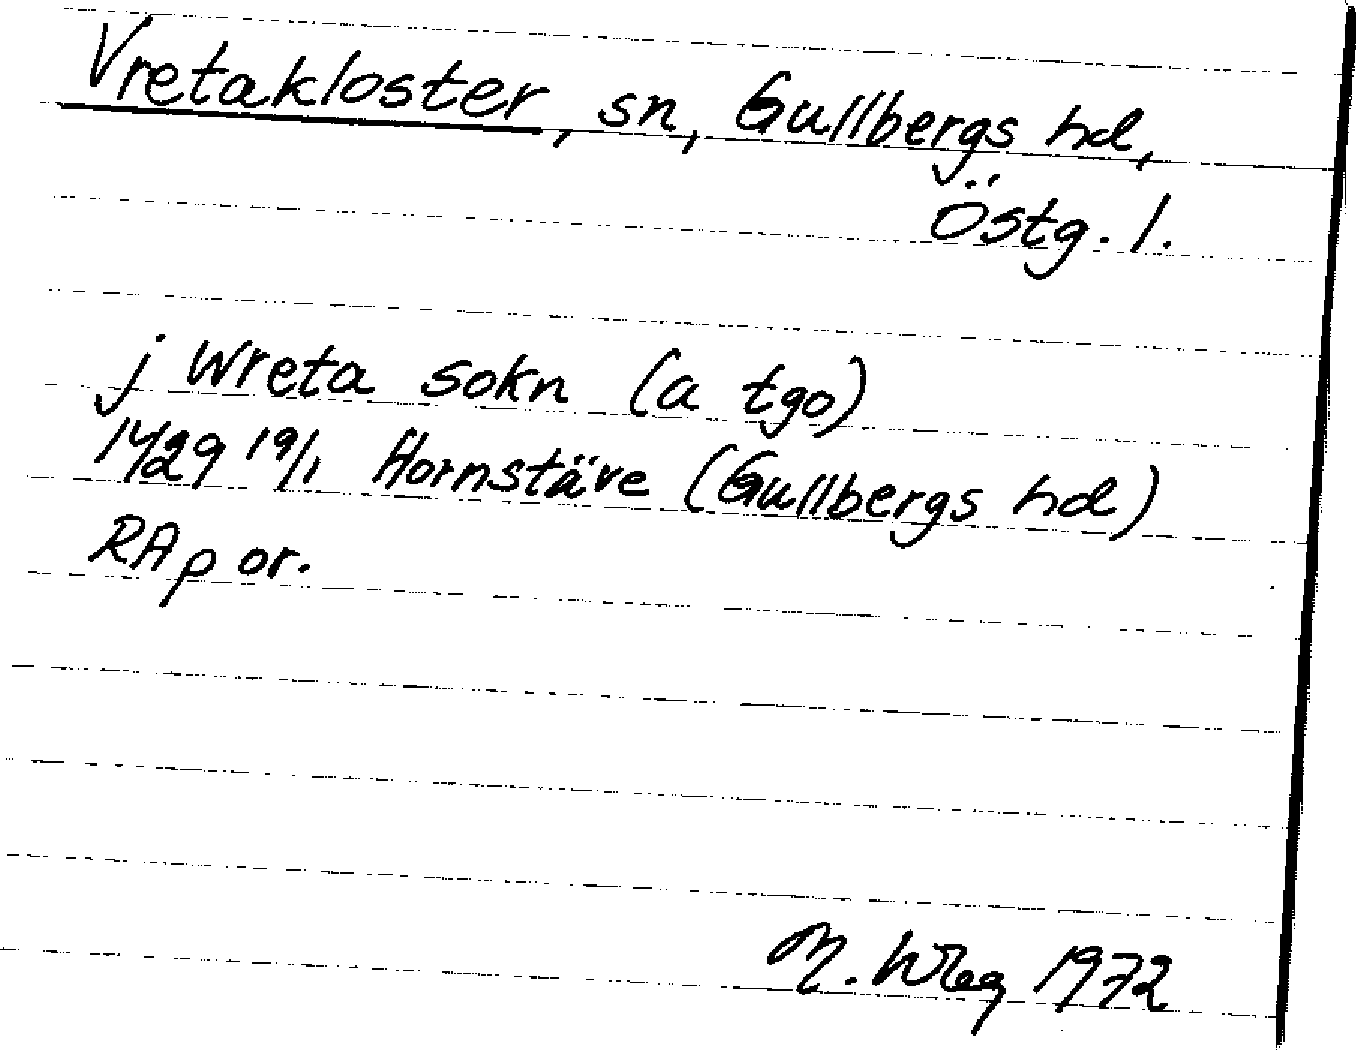 Vretakloster, sn, Gullbergs hd,
Östg. l.
j Wreta sokn (a tgo)
1429 19/1 Hornstäve (Gullbergs hd)
RAp or.
M. Wbg 1972